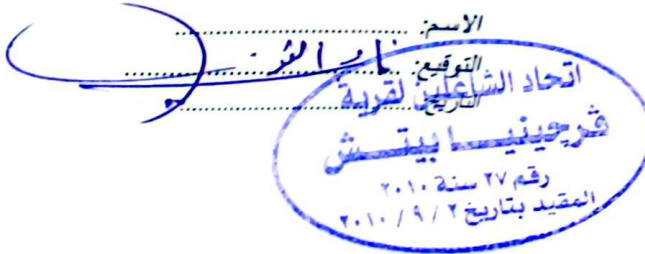 الاسم: ..............................
التوقيع: ..............................
التاريخ: ..............................
اتحاد الشاغلين لقرية
ڤرجينيــا بيتــش
رقم ٢٧ سنة ٢٠١٠
المقيد بتاريخ ٢ / ٩ / ٢٠١٠